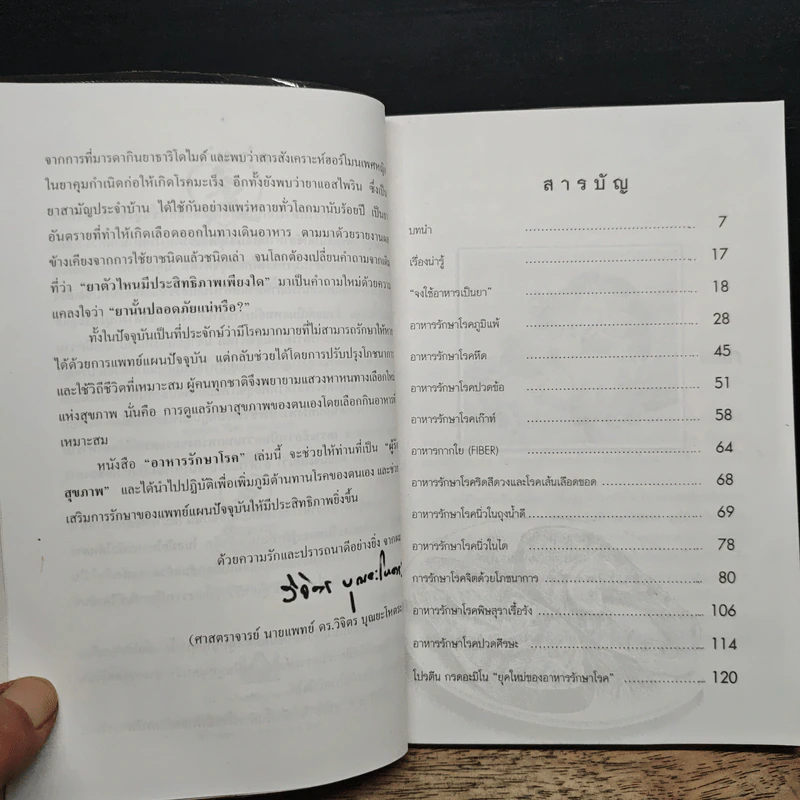 จากการที่มารดากินยาธาริโดไมด์ และพบว่าสารสังเคราะห์ฮอร์โมนเพศหญิง
ในยาคุมกำเนิดก่อให้เกิดโรคมะเร็ง อีกทั้งยังพบว่ายาแอสไพริน ซึ่งเป็น
ยาสามัญประจำบ้าน ได้ใช้กันอย่างแพร่หลายทั่วโลกมานับร้อยปี เป็น
อันตรายที่ทำให้เกิดเลือดออกในทางเดินอาหาร ตามมาด้วยรายงาน
ข้างเคียงจากการใช้ยาชนิดแล้วชนิดเล่า จนโลกต้องเปลี่ยนคำถามจาก
ที่ว่า “ยาตัวไหนมีประสิทธิภาพเพียงใด” มาเป็นคำถามใหม่ด้วยความ
แคลงใจว่า “ยานั้นปลอดภัยแน่หรือ?”
ทั้งในปัจจุบันเป็นที่ประจักษ์ว่ามีโรคมากมายที่ไม่สามารถรักษาให้
ได้ด้วยการแพทย์แผนปัจจุบัน แต่กลับช่วยได้โดยการปรับปรุงโภชนาการ
และใช้วิถีชีวิตที่เหมาะสม ผู้คนทุกชาติจึงพยายามแสวงหาหนทางเลือกใหม่
แห่งสุขภาพ นั่นคือ การดูแลรักษาสุขภาพของตนเองโดยเลือกกินอาหารที่
เหมาะสม
หนังสือ “อาหารรักษาโรค” เล่มนี้ จะช่วยให้ท่านที่เป็น
สุขภาพ” และได้นำไปปฏิบัติเพื่อเพิ่มภูมิต้านทานโรคของตนเอง และช่วย
เสริมการรักษาของแพทย์แผนปัจจุบันให้มีประสิทธิภาพยิ่งขึ้น
ด้วยความรักและปรารถนาดีอย่างยิ่ง จาก
วิจิตร บุณยะโหตระ
(ศาสตราจารย์ นายแพทย์ ดร.วิจิตร บุณยะโหตระ)
สารบัญ
บทนำ ........ 7
เรื่องน่ารู้ ........ 17
“จงใช้อาหารเป็นยา” ........ 18
อาหารรักษาโรคภูมิแพ้ ........ 28
อาหารรักษาโรคหืด ........ 45
อาหารรักษาโรคปวดข้อ ........ 51
อาหารรักษาโรคเก๊าท์ ........ 58
อาหารกากใย (FIBER) ........ 64
อาหารรักษาโรคริดสีดวงและโรคเส้นเลือดขอด ........ 68
อาหารรักษาโรคนิ่วในถุงน้ำดี ........ 69
อาหารรักษาโรคนิ่วในไต ........ 78
การรักษาโรคจิตด้วยโภชนาการ ........ 80
อาหารรักษาโรคพิษสุราเรื้อรัง ........ 106
อาหารรักษาโรคปวดศีรษะ ........ 114
โปรตีน กรดอะมิโน “ยุคใหม่ของอาหารรักษาโรค” ........ 120